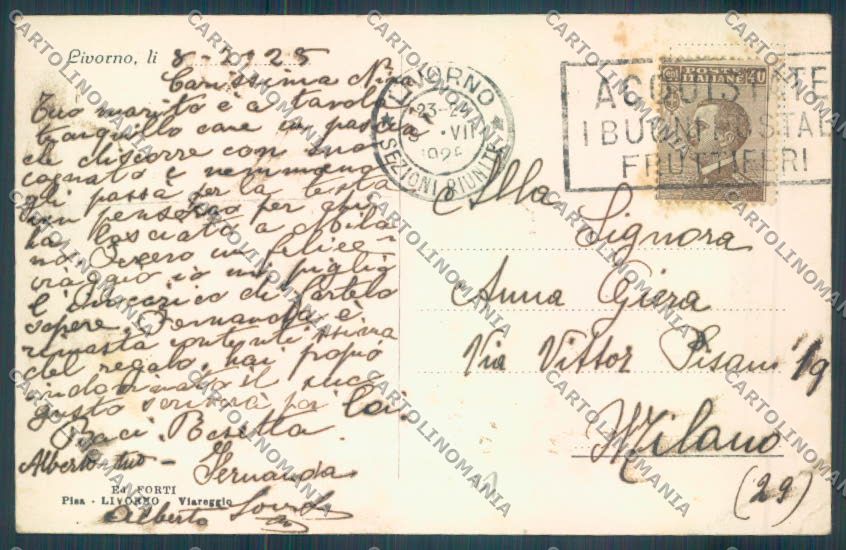 Livorno, li 8-7-925
Carissima Nina
Tuo marito è a tavola
tranquillo come un pascià
che discorre con suo
cognato e nemmeno
gli passa per la testa
un pensiero per chi
ha lasciato a Mila
no. Dissero un felice
viaggio io mi piglio
l'incarico di fartelo
sapere. Fernanda è
rimasta contentissima
del regalo, hai propio
indovinato il suo
gusto scriverà poi lei.
Baci. Besitta
Alberto tuo - Fernanda
Alberto
Ed. FORTI
Pisa - LIVORNO - Viareggio
LIVORNO
23-2
VII
1925
SEZIONI RIUNITE
POSTE
ITALIANE
40
ACQUISTATE
I BUONI POSTALI
FRUTTIFERI
Alla
Signora
Anna Giera
Via Vittor Pisani 19
Milano
(29)
CARTOLINOMANIA